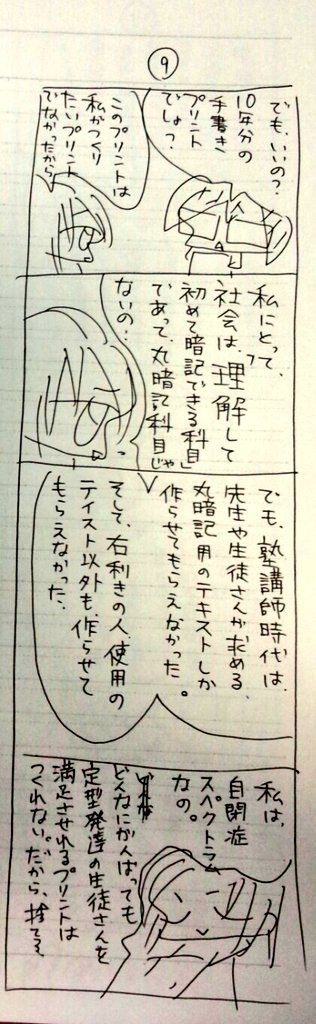 ⑨
でも、いいの?
10年分の
手書き
プリント
でしょ?
このプリントは
私がつくり
たいプリント
でなかったから
私にとって、
社会は、「理解して
初めて暗記できる科目」
であって、丸暗記科目じゃ
ないの。
でも、塾講師時代は、
先生や生徒さんが求める、
丸暗記用のテキストしか
作らせてもらえなかった。
そして、右利きの人、使用の
テイスト以外も、作らせて
もらえなかった、
私は、
自閉症
スペクトラム
なの。
どんなにがんばっても
定型発達の生徒さんを
満足させれるプリントは
つくれない。だから、捨てる